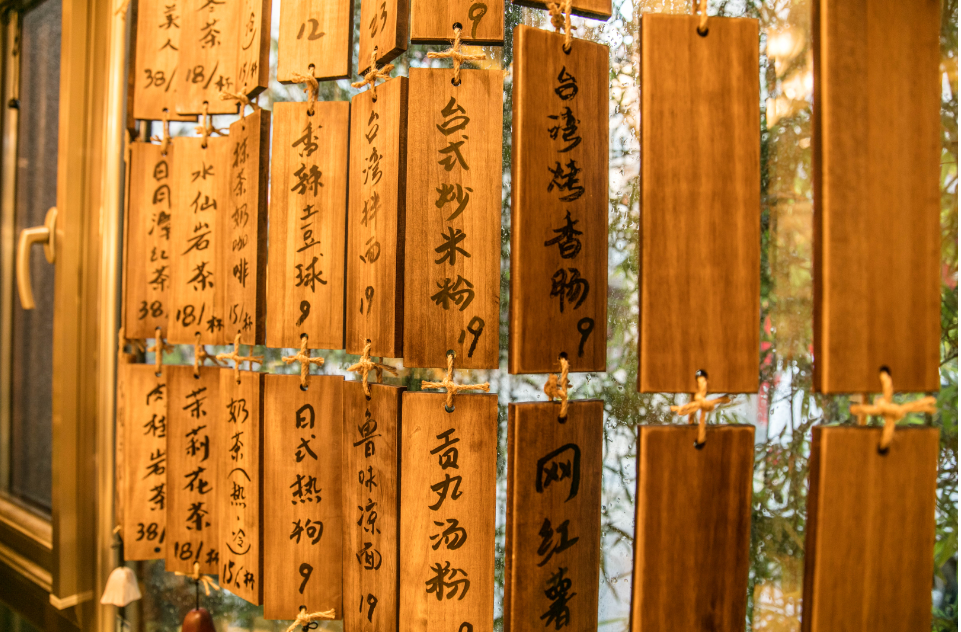 美人
38/
茶
18/杯
15/杯
12
13
9
日月潭红茶
38/
水仙岩茶
18/杯
抹茶奶咖啡
15/杯
香酥土豆球
9
台湾拌面
19
台式炒米粉
19
台湾烤香肠
9
肉桂岩茶
38/
茉莉花茶
18/杯
奶茶(热·冷)
15/杯
日式热狗
9
鲁味凉面
19
贡丸汤粉
网红薯